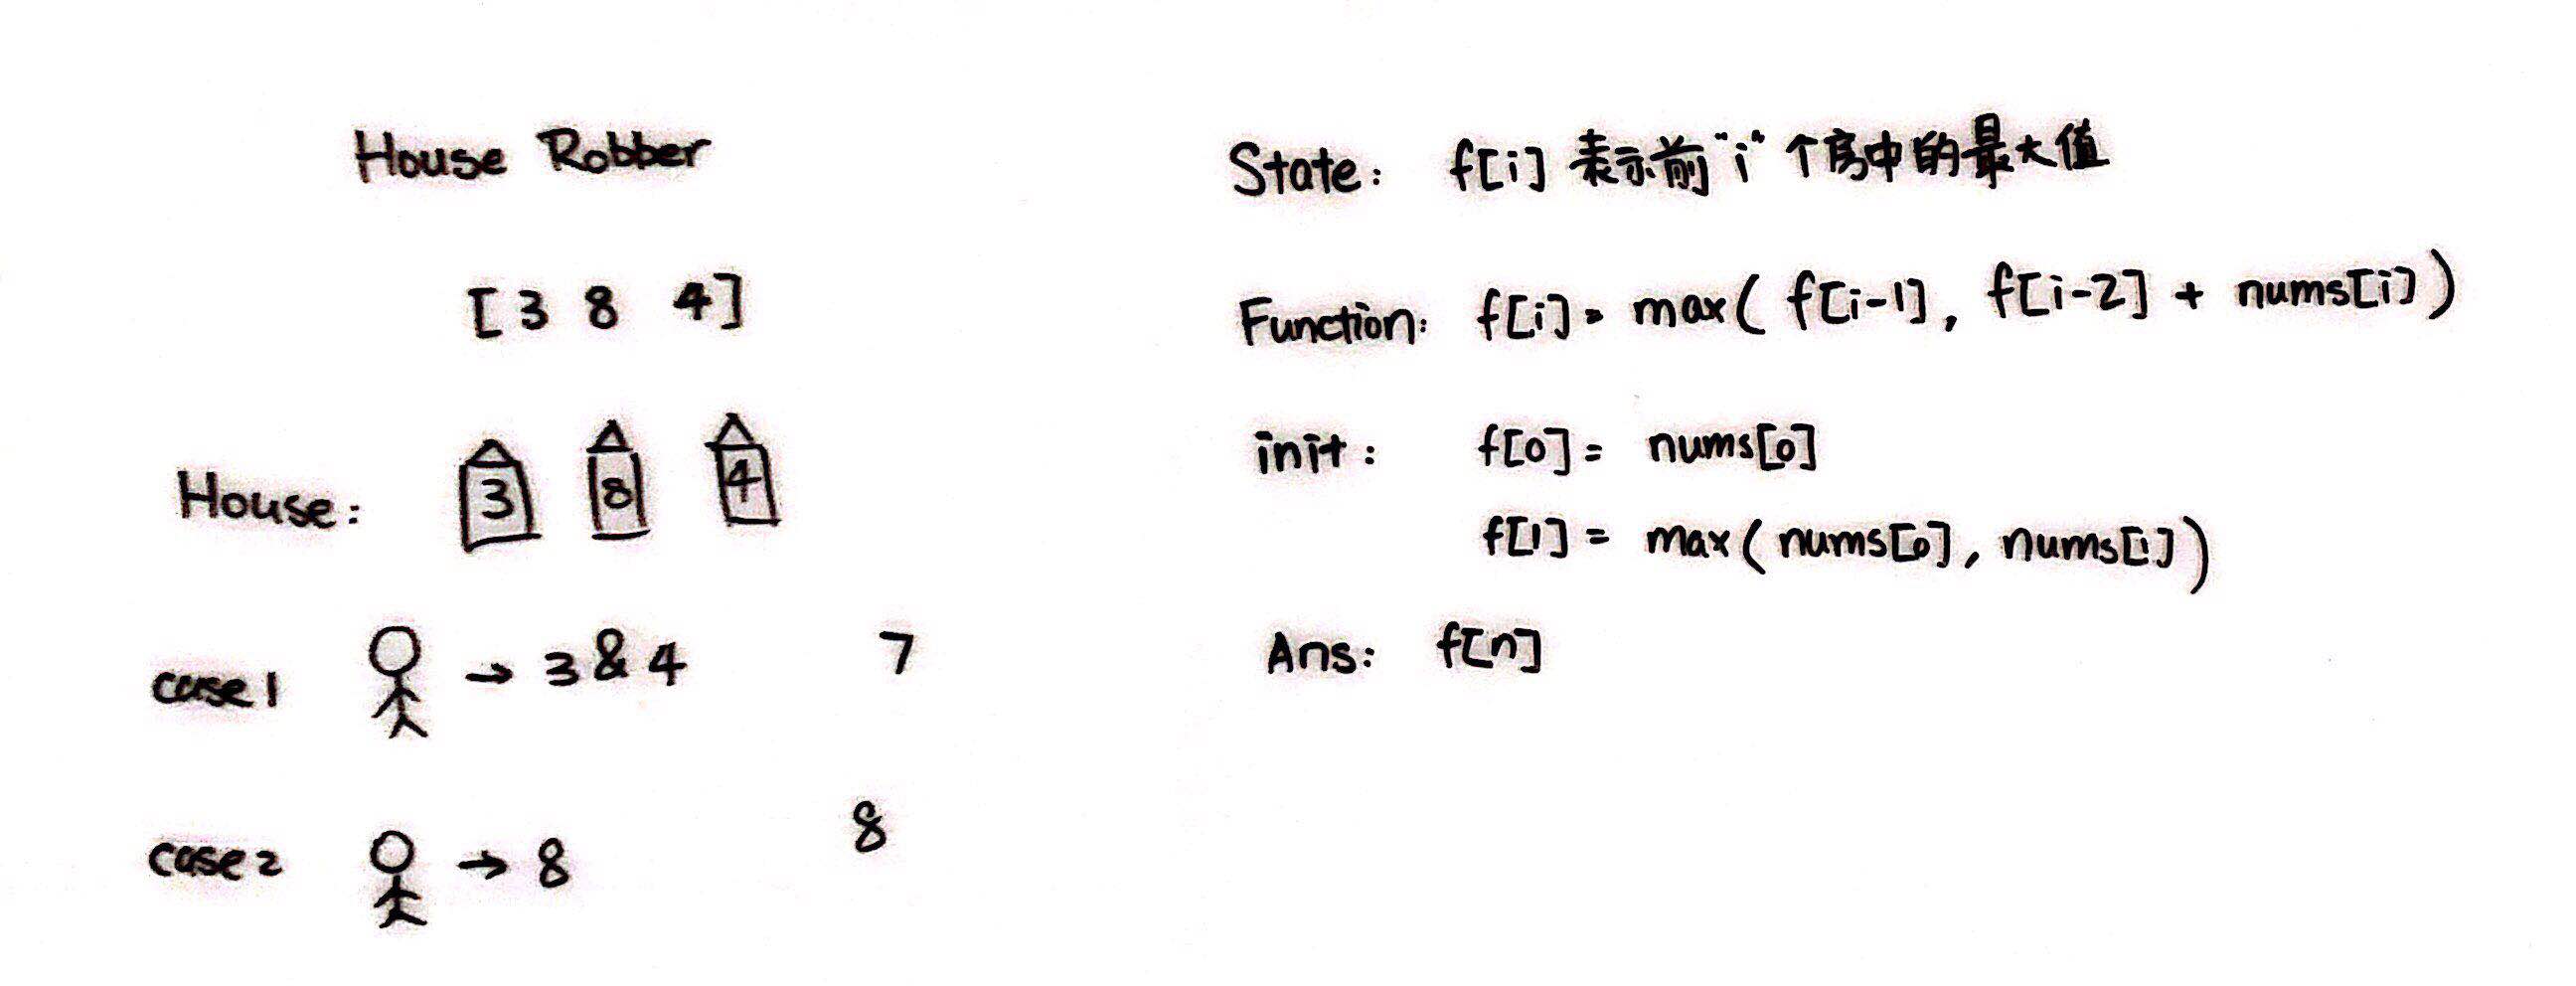 House Robber
[ 3 8 4 ]
House: 3 8 4
case 1 → 3 & 4 7
case 2 → 8 8
State: f[i] 表示前"i"个房中的最大值
Function: f[i] = max( f[i-1], f[i-2] + nums[i] )
init: f[0] = nums[0]
f[1] = max( nums[0], nums[1] )
Ans: f[n]